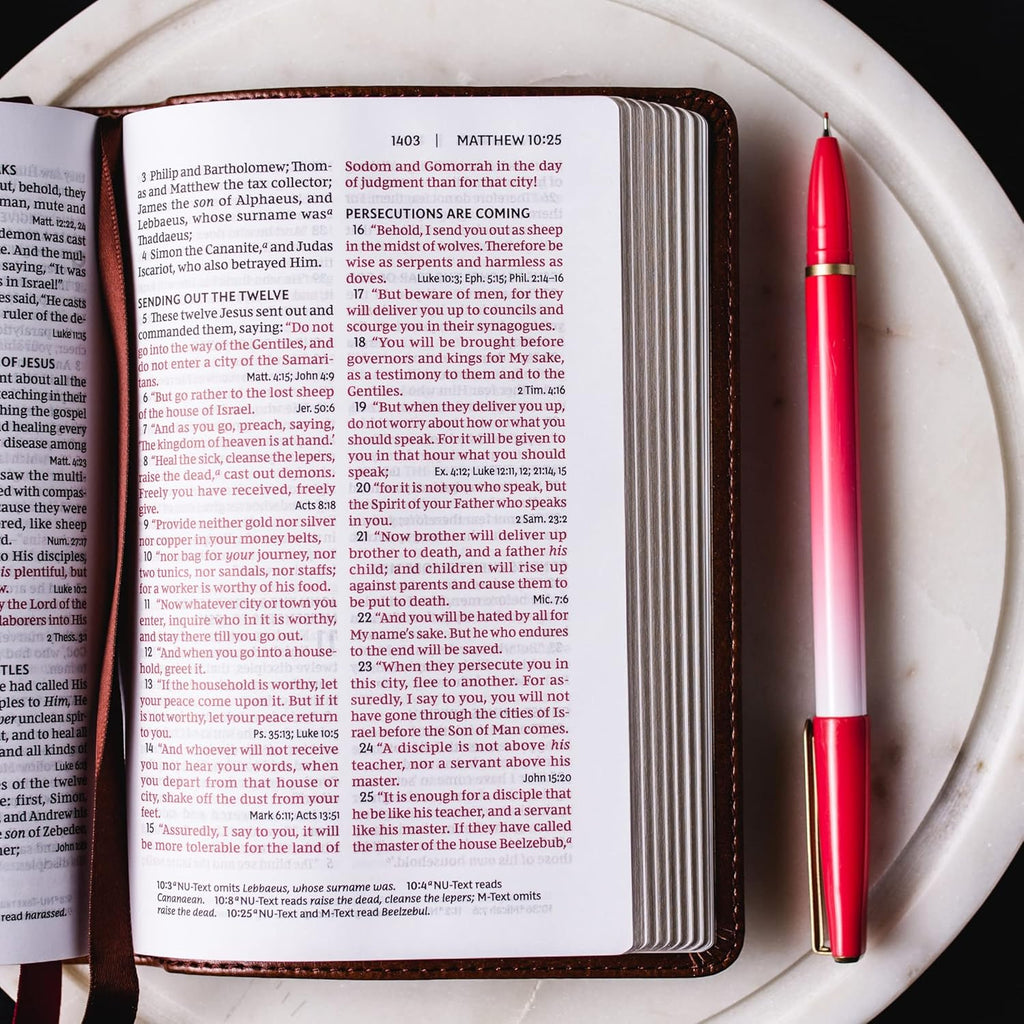 KS
ut, behold, they
man, mute and
Matt. 12:22, 24
demon was cast
e. And the mul-
saying, “It was
s in Israel!”
es said, “He casts
ruler of the de-
Luke 11:15
OF JESUS
nt about all the
teaching in their
hing the gospel
d healing every
disease among
Matt. 4:23
saw the multi-
ed with compas-
cause they were
red, like sheep
rd. Num. 27:17
o His disciples,
is plentiful, but
w. Luke 10:2
y the Lord of the
laborers into His
2 Thess. 3:1
TLES
e had called His
ples to Him, He
per unclean spir-
t, and to heal all
and all kinds of
Luke 6:13
es of the twelve
e: first, Simon,
and Andrew his
son of Zebedee,
her; John 1:42
read harassed.
1403 | MATTHEW 10:25
3 Philip and Bartholomew; Thom-
as and Matthew the tax collector;
James the son of Alphaeus, and
Lebbaeus, whose surname wasᵃ
Thaddaeus;
4 Simon the Cananite,ᵃ and Judas
Iscariot, who also betrayed Him.
SENDING OUT THE TWELVE
5 These twelve Jesus sent out and
commanded them, saying: “Do not
go into the way of the Gentiles, and
do not enter a city of the Samari-
tans. Matt. 4:15; John 4:9
6 “But go rather to the lost sheep
of the house of Israel. Jer. 50:6
7 “And as you go, preach, saying,
‘The kingdom of heaven is at hand.’
8 “Heal the sick, cleanse the lepers,
raise the dead,ᵃ cast out demons.
Freely you have received, freely
give. Acts 8:18
9 “Provide neither gold nor silver
nor copper in your money belts,
10 “nor bag for your journey, nor
two tunics, nor sandals, nor staffs;
for a worker is worthy of his food.
11 “Now whatever city or town you
enter, inquire who in it is worthy,
and stay there till you go out.
12 “And when you go into a house-
hold, greet it.
13 “If the household is worthy, let
your peace come upon it. But if it
is not worthy, let your peace return
to you. Ps. 35:13; Luke 10:5
14 “And whoever will not receive
you nor hear your words, when
you depart from that house or
city, shake off the dust from your
feet. Mark 6:11; Acts 13:51
15 “Assuredly, I say to you, it will
be more tolerable for the land of
Sodom and Gomorrah in the day
of judgment than for that city!
PERSECUTIONS ARE COMING
16 “Behold, I send you out as sheep
in the midst of wolves. Therefore be
wise as serpents and harmless as
doves. Luke 10:3; Eph. 5:15; Phil. 2:14–16
17 “But beware of men, for they
will deliver you up to councils and
scourge you in their synagogues.
18 “You will be brought before
governors and kings for My sake,
as a testimony to them and to the
Gentiles. 2 Tim. 4:16
19 “But when they deliver you up,
do not worry about how or what you
should speak. For it will be given to
you in that hour what you should
speak; Ex. 4:12; Luke 12:11, 12; 21:14, 15
20 “for it is not you who speak, but
the Spirit of your Father who speaks
in you. 2 Sam. 23:2
21 “Now brother will deliver up
brother to death, and a father his
child; and children will rise up
against parents and cause them to
be put to death. Mic. 7:6
22 “And you will be hated by all for
My name’s sake. But he who endures
to the end will be saved.
23 “When they persecute you in
this city, flee to another. For as-
suredly, I say to you, you will not
have gone through the cities of Is-
rael before the Son of Man comes.
24 “A disciple is not above his
teacher, nor a servant above his
master. John 15:20
25 “It is enough for a disciple that
he be like his teacher, and a servant
like his master. If they have called
the master of the house Beelzebub,ᵃ
10:3 ᵃ NU-Text omits Lebbaeus, whose surname was. 10:4 ᵃ NU-Text reads
Cananaean. 10:8 ᵃ NU-Text reads raise the dead, cleanse the lepers; M-Text omits
raise the dead. 10:25 ᵃ NU-Text and M-Text read Beelzebul.